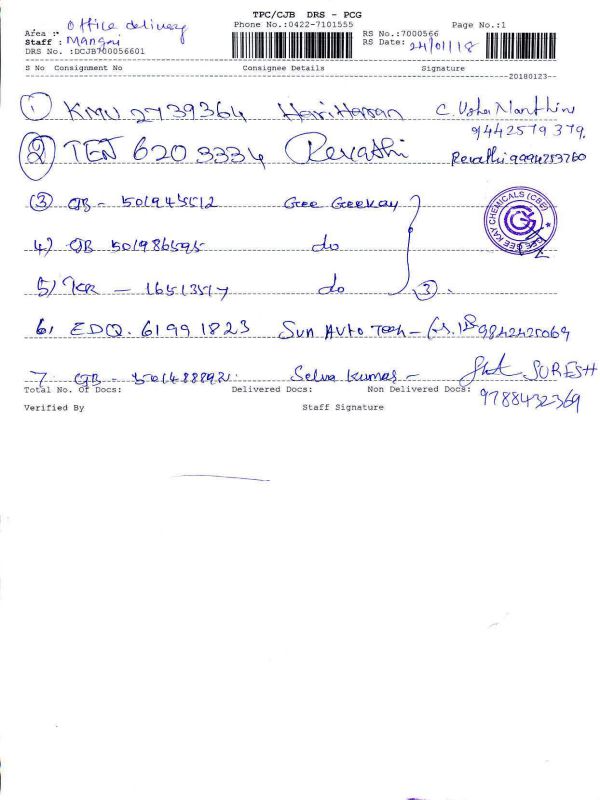 TPC/CJB DRS - PCG
Area : Office delivery Phone No.:0422-7101555 RS No.:7000566 Page No.:1
Staff : Mangai RS Date: 24/01/18
DRS No. :DCJB700056601
S No Consignment No Consignee Details Signature
20180123
1 KMU 2739364 Hariharan C. Usha Nanthini
9442579379.
2 TEN 620 3334 Revathi Revathi 9994253760
3 GB - 501945512 Gee Geekay
GEE GEE KAY CHEMICALS (CBE)
4) GB 501986595 do
5) KR - 16513577 do 3.
6, EDQ. 6199 1823 Sun Auto Tech - 9842425069
7. GB - 5014888921. Selva Kumar - SURESH
Total No. Of Docs: Delivered Docs: Non Delivered Docs:
9788432369
Verified By Staff Signature